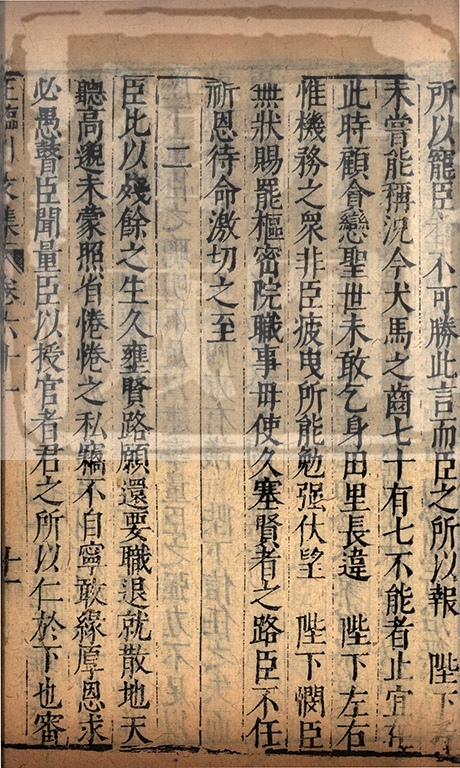 所以寵臣者不可勝此言而臣之所以報　陛下
未嘗能稱況今犬馬之齒七十有七不能者止宜在
此時顧貪戀聖世未敢乞身田里長違　陛下左右
惟機務之眾非臣疲曳所能勉强伏望　陛下憫臣
無狀賜罷樞密院職事毋使久塞賢者之路臣不任
祈恩待命激切之至
二
臣比以殘餘之生久壅賢路願還要職退就散地天
聽高邈未蒙照省惓惓之私竊不自寧敢緣厚恩求
必愚瞽臣聞量臣以授官者君之所以仁於下也審
王臨川文集　卷六十一　十一